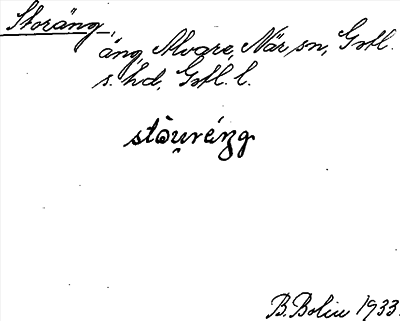 Storäng,
äng, Alvare, När sn, Gotl.
s. hd, Gotl. l.
stòu̯réng
B. Bolin 1933.